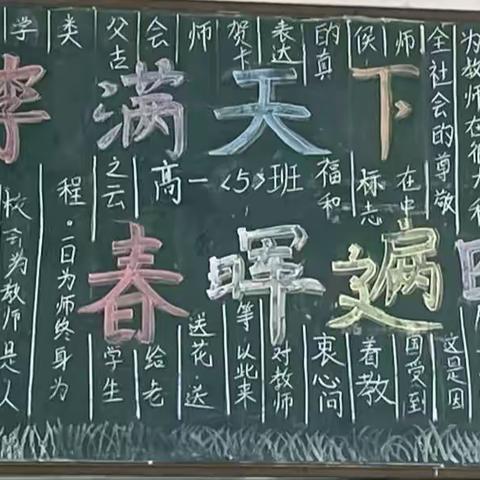 李满天下
春晖遍
高一<5>班
学校会为教师是人
类程。一日为师终身为
父古之云学生
会给老
师送花送
贺卡等以此来
表达对教师
的真福和衷心问
候标志着教
师在中国受到
全社会的尊敬这是因
为教师在很大